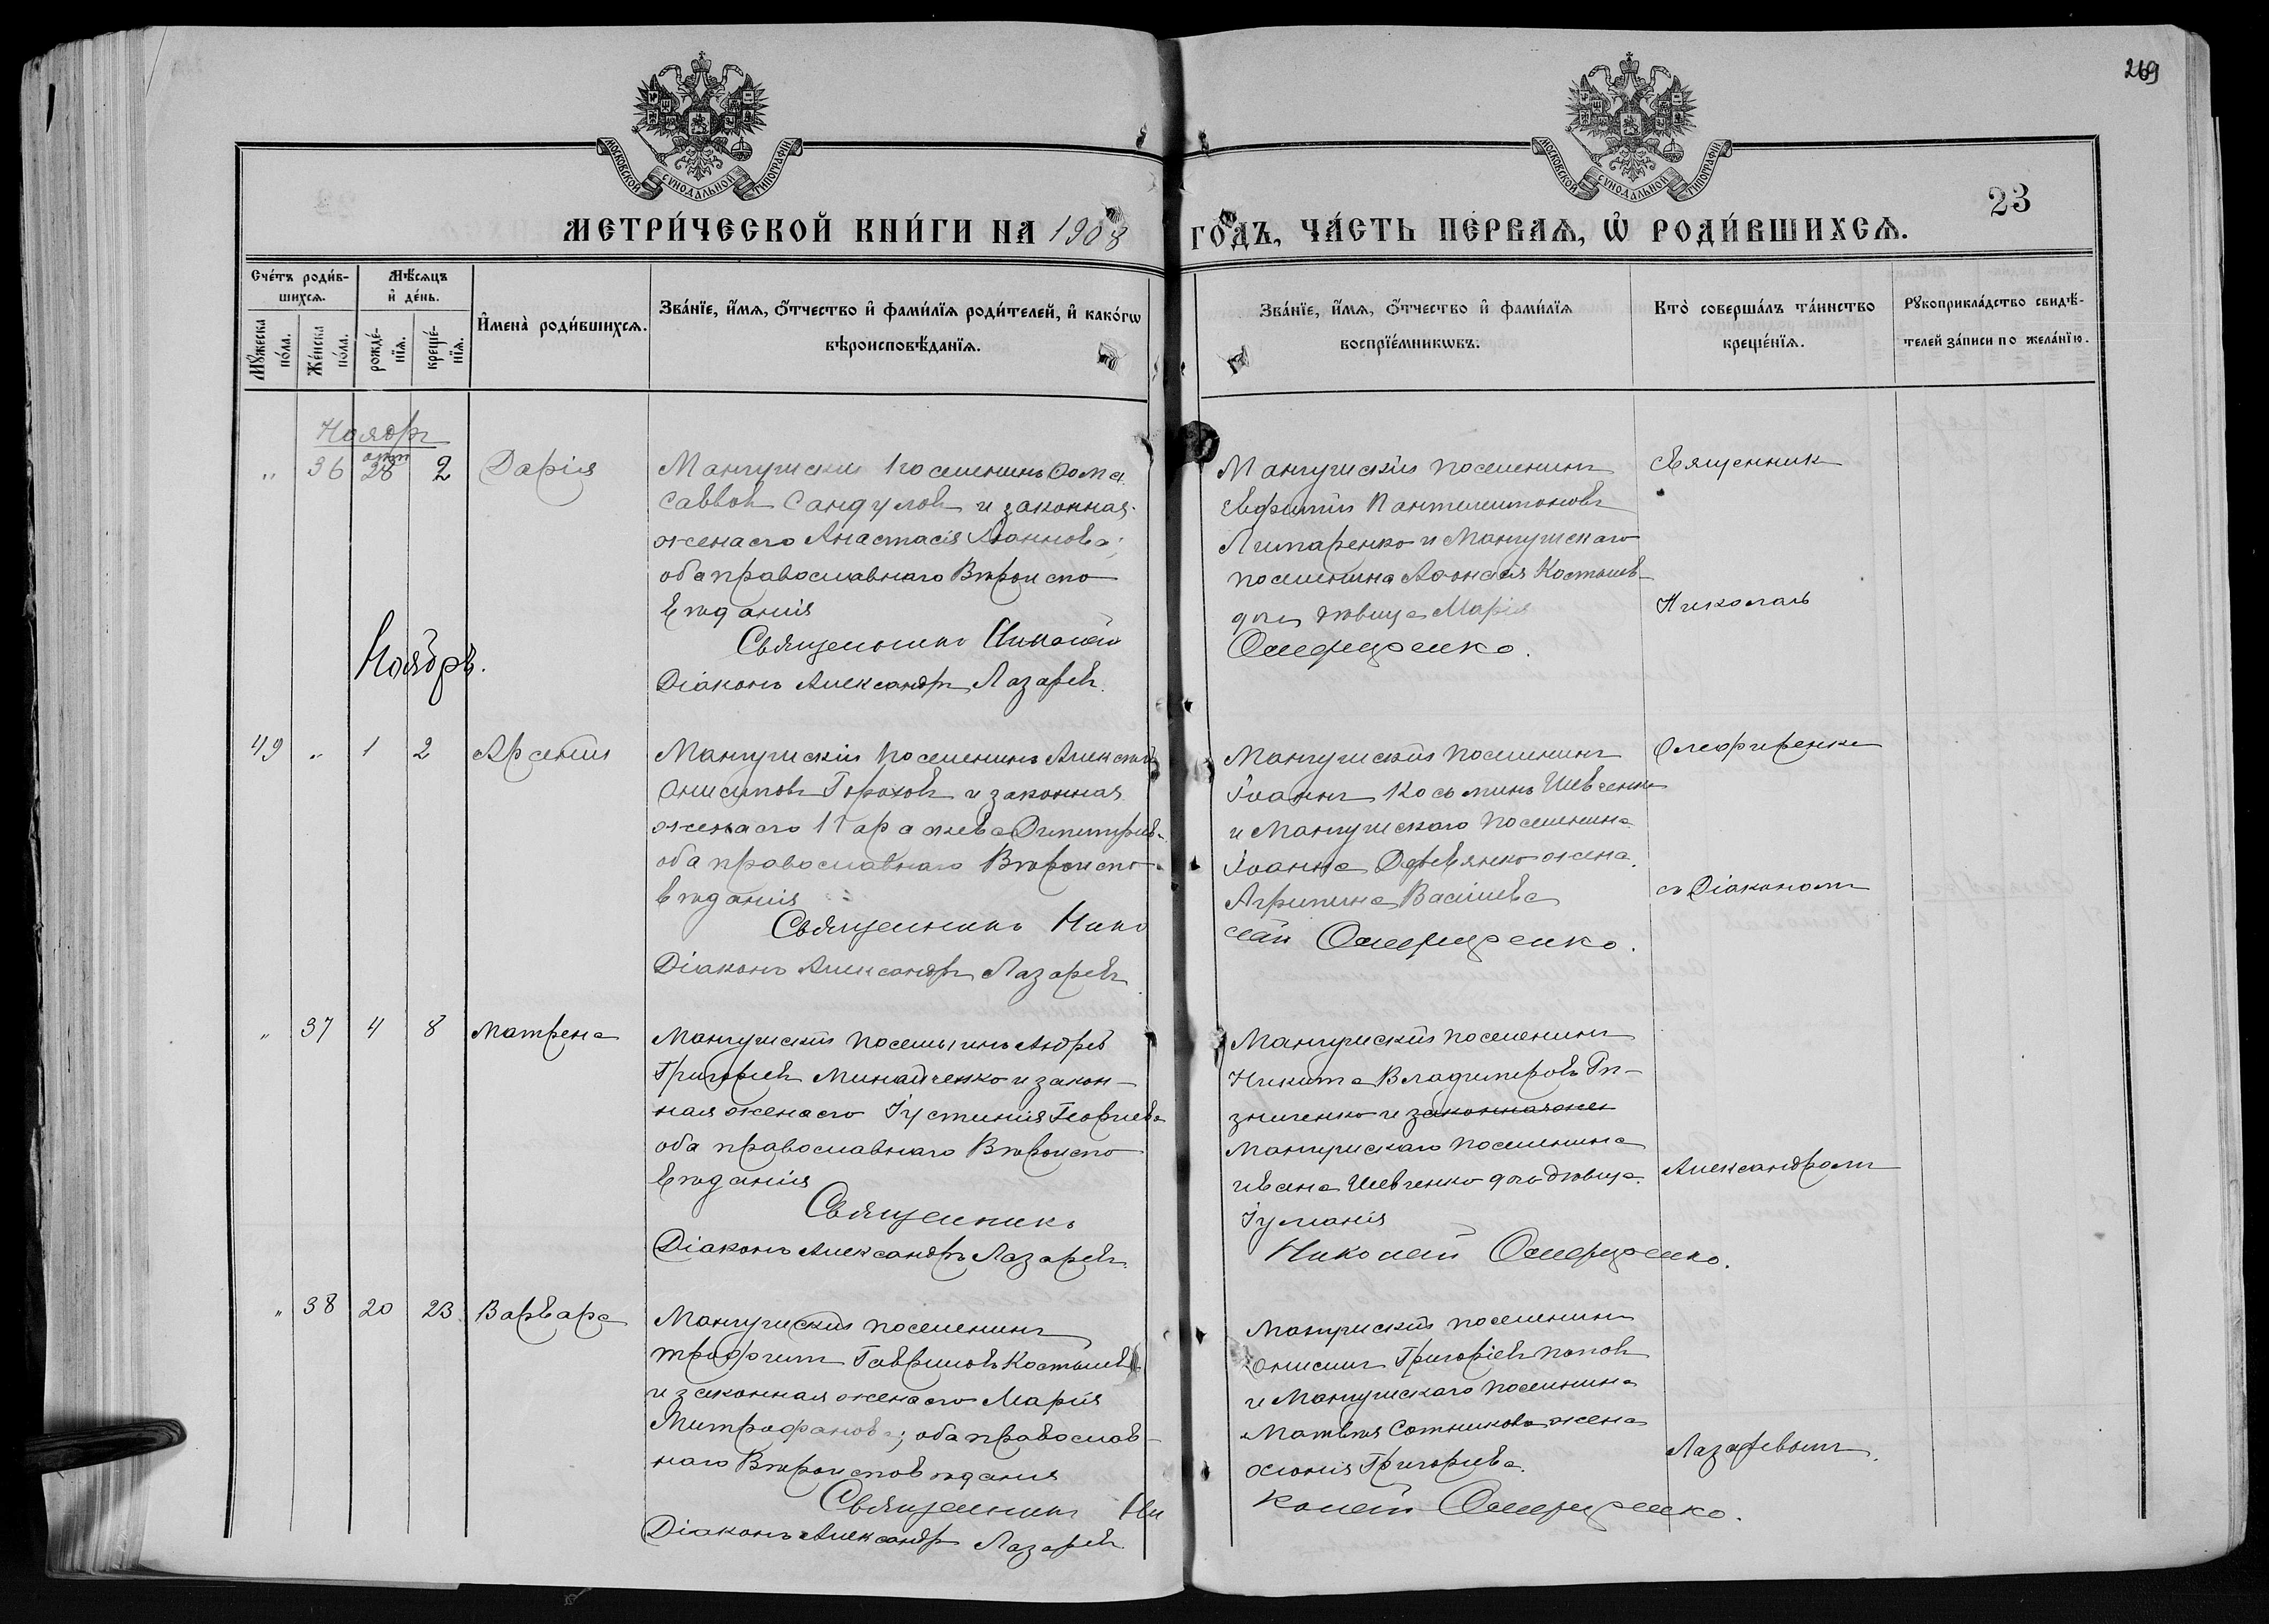 269
МОСКОВСКОЙ СУНОДАЛЬНОЙ ТИПОГРАФІИ
МОСКОВСКОЙ СУНОДАЛЬНОЙ ТИПОГРАФІИ
23
МЕТРИ́ЧЕСКОЙ КНИ́ГИ НА 1908 ГО́ДЪ, ЧА́СТЬ ПЕ́РВАѦ, Ѡ҆ РОДИ́ВШИХСѦ.
Сче́тъ роди́в-
шихсѧ.
Мѣ́сѧцъ
и҆ де́нь.
Мꙋ́жеска
по́ла.
Же́нска
по́ла.
рожде́-
нїѧ.
креще́-
нїѧ.
И҆мена̀ роди́вшихсѧ.
Зва́нїе, и҆́мѧ, ѻ҆́тчество и҆ фами́лїѧ роди́телей, и҆ како́гѡ
вѣроисповѣ́данїѧ.
Зва́нїе, и҆́мѧ, ѻ҆́тчество и҆ фами́лїѧ
воспрїе́мникѡвъ.
Кто̀ соверша́лъ та́инство
креще́нїѧ.
Рꙋкоприкла́дство свидѣ́-
телей за́писи по жела́нїю.
Ноябрь
окт
" 36 28 2 Дарія
Мангушскій поселенинъ Ѳома
Саввовъ Сандуловъ и законная
жена его Анастасія Іоаннова;
оба православнаго Вѣроиспо-
вѣданія
Священникъ Николай
Діаконъ Александръ Лазаревъ.
Мангушскій поселенинъ
Евфимій Пантелеимоновъ
Лимаренко и Мангушскаго
поселенина Аѳонасія Костылев
дочь дѣвица Марія
Олефиренко.
Священник
Николай
Ноябрь.
49 " 1 2 Арсеній
Мангушскій поселенинъ Алексѣй
Онисимовъ Гороховъ и законная
жена его Параскева Димитріев
оба православнаго Вѣроиспо-
вѣданія
Священникъ Нико
Діаконъ Александръ Лазаревъ
Мангушскій поселенинъ
Іоаннъ Косьминъ Шевченко
и Мангушскаго поселенина
Іоанна Деревянко жена
Агрипина Васильева
лай Олефиренко.
Олефиренко
съ Діакономъ
" 37 4 8 Матрена
Мангушскій поселенинъ Андрей
Григорьевъ Минайченко и закон-
ная жена его Іустинія Георгиева
оба православнаго Вѣроиспо-
вѣданія
Священникъ
Діаконъ Александръ Лазаревъ.
Мангушскій поселенинъ
Никита Владимировъ Рѣ-
зниченко и законная жен
Мангушскаго поселенина
Ивана Шевченко дочь дѣвица
Іуліанія
Николай Олефиренко.
Александромъ
" 38 20 23 Варвара
Мангушскій поселенинъ
Трофимъ Гавриловъ Костылев
и законная жена его Марія
Митрофанова; оба православ-
наго Вѣроисповѣданія
Священникъ Ни
Діаконъ Александръ Лазаревъ
Мангушскій поселенинъ
Онисимъ Григорьевъ Поповъ
и Мангушскаго поселенина
Матвѣя Сотникова жена
Григорьева.
колай Олефиренко.
Лазаревымъ.